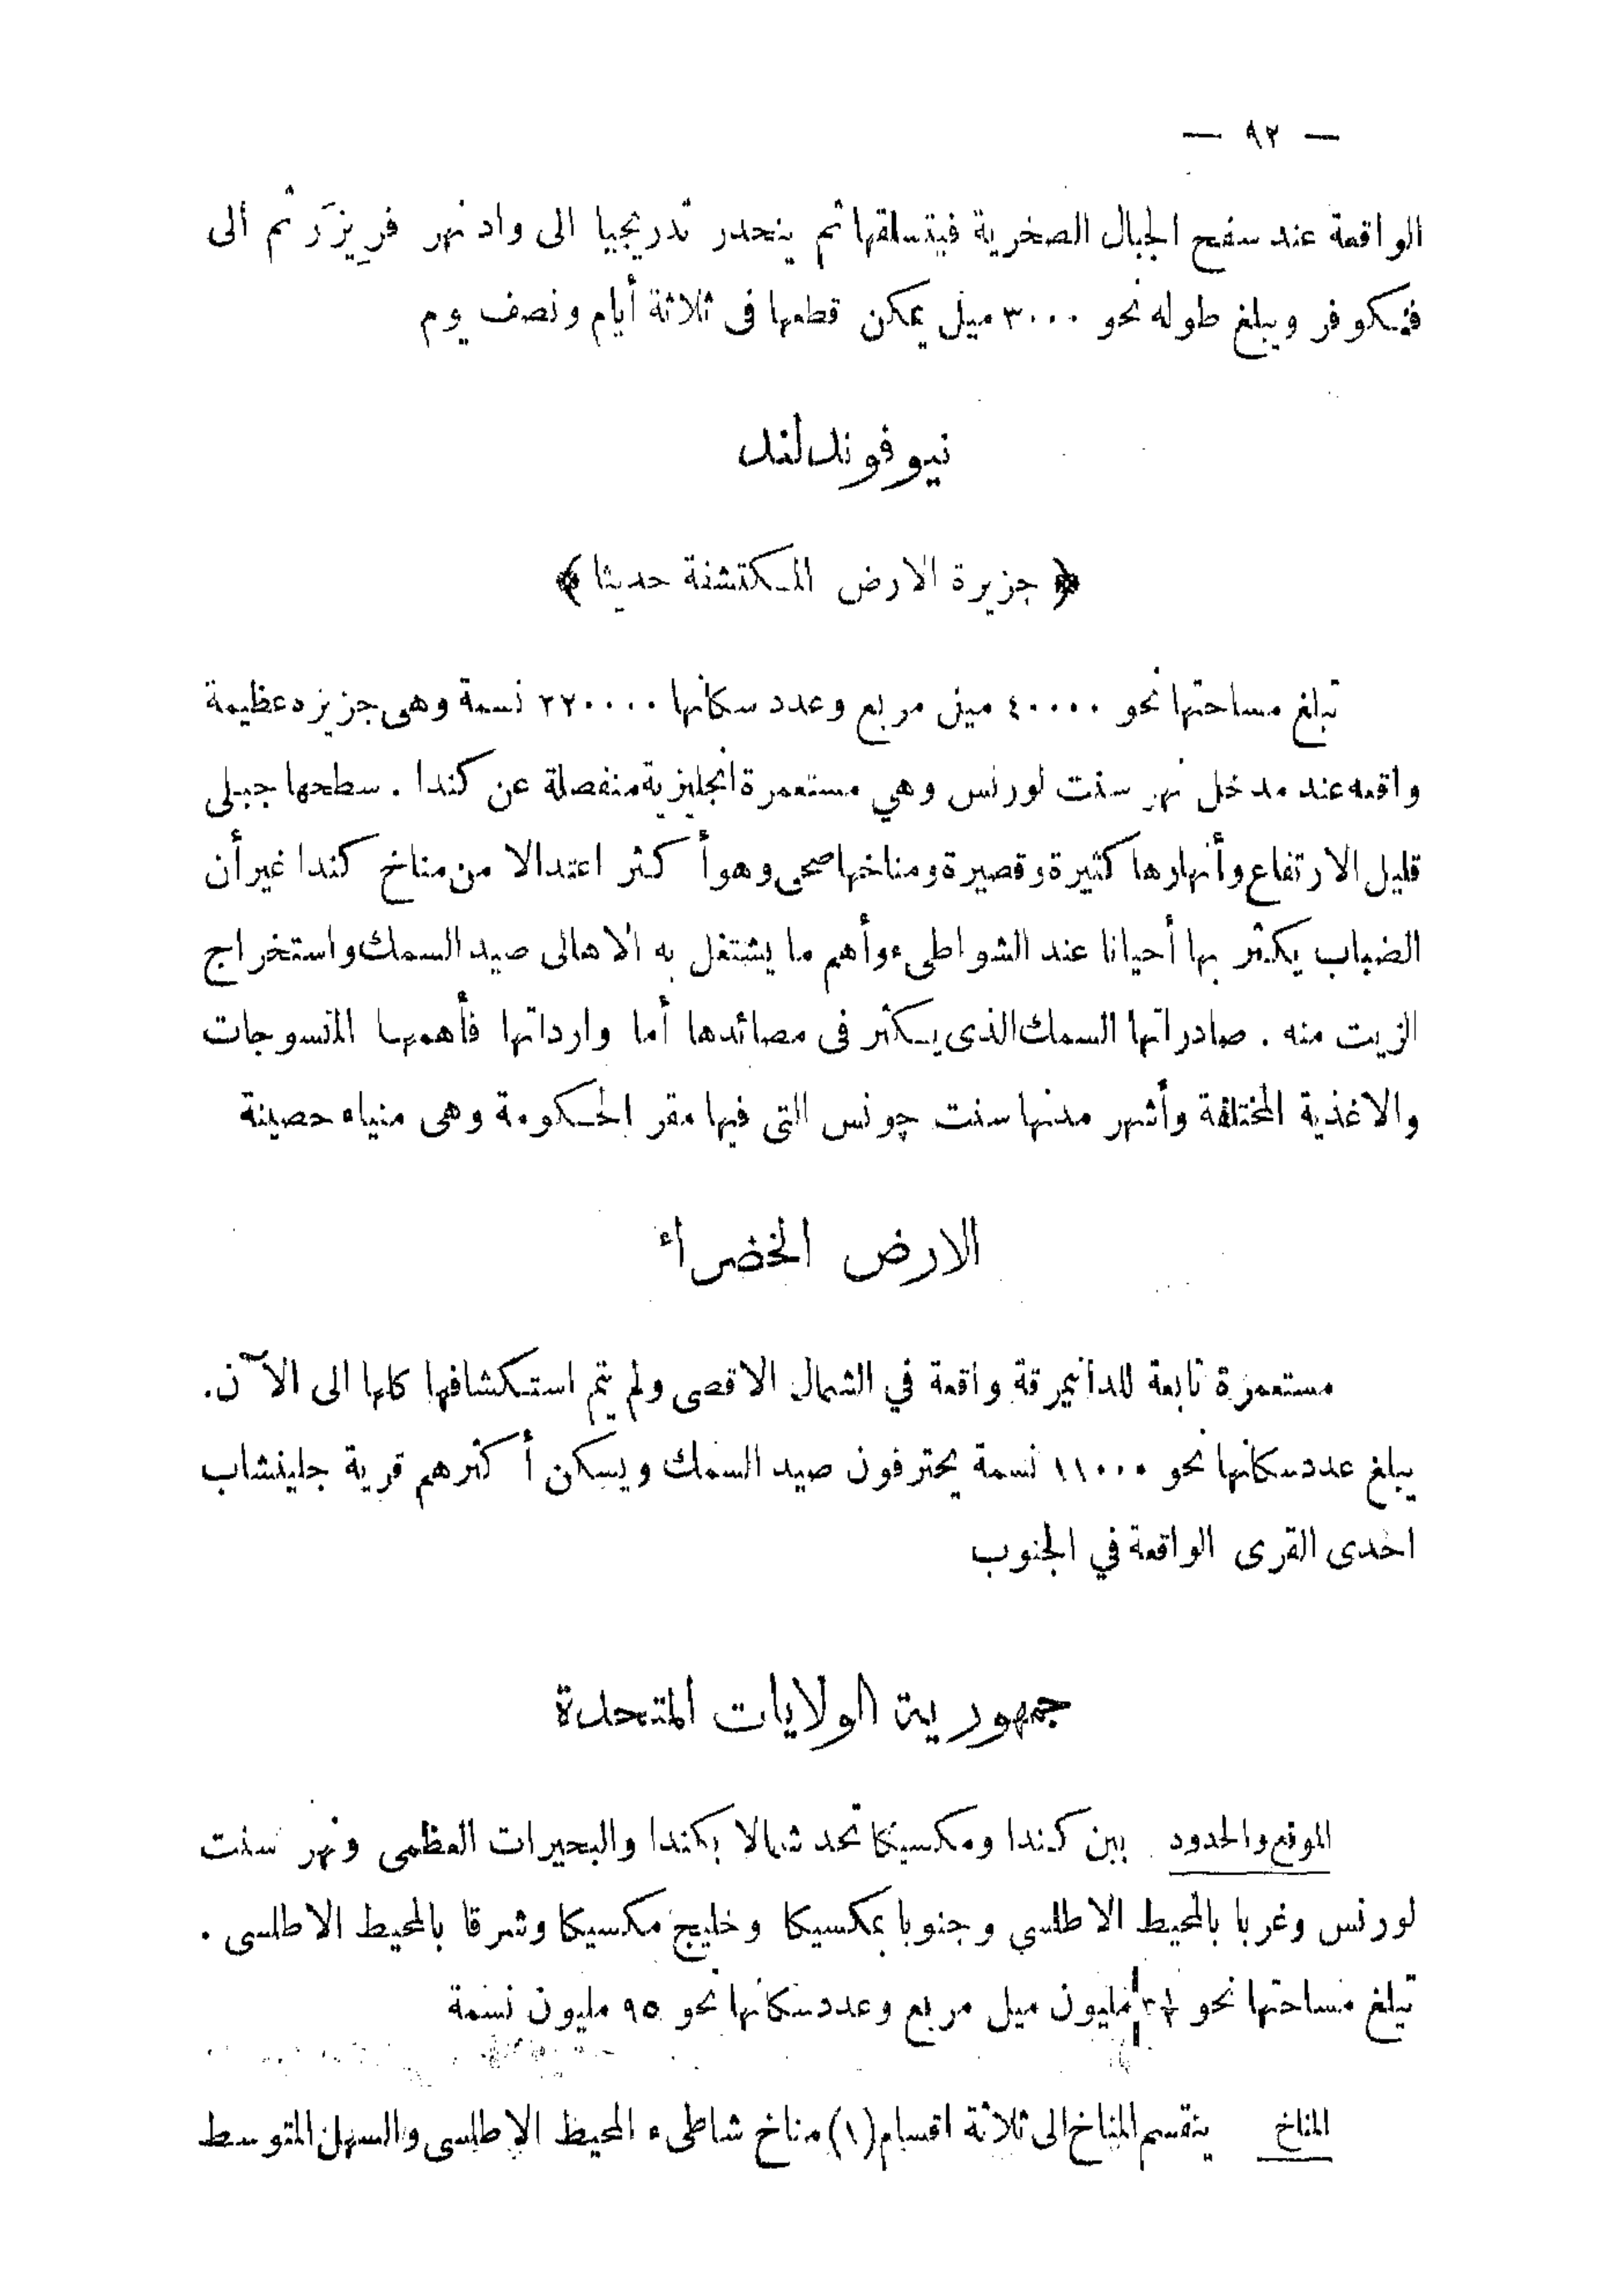 — ٩٢ —
الواقعة عند سفح الجبال الصخرية فيتسلقها ثم ينحدر تدريجيا الى واد نهر فرِيزَر ثم الى
فنكوفر ويبلغ طوله نحو ٣٠٠٠ ميل يمكن قطعها فى ثلاثة أيام ونصف يوم
نيوفوندلند
﴿ جزيرة الارض المكتشفة حديثا ﴾
تبلغ مساحتها نحو ٤٠٠٠٠ ميل مربع وعدد سكانها ٢٢٠٠٠٠ نسمة وهى جزيره عظيمة
واقعه عند مدخل نهر سنت لورنس وهي مستعمرة انجليزية منفصلة عن كندا . سطحها جبلى
قليل الارتفاع وأنهارها كثيرة وقصيرة ومناخها صحى وهو أكثر اعتدالا من مناخ كندا غير أن
الضباب يكثر بها أحيانا عند الشواطىء وأهم ما يشتغل به الاهالى صيد السمك واستخراج
الزيت منه . صادراتها السمك الذى يكثر فى مصائدها أما وارداتها فأهمها المنسوجات
والاغذية المختلفة وأشهر مدنها سنت چونس التى فيها مقر الحكومة وهى منياه حصينة
الارض الخضراء
مستعمرة تابعة للدانيمرقة واقعة في الشمال الاقصى ولم يتم استكشافها كلها الى الآن.
يبلغ عدد سكانها نحو ١١٠٠٠ نسمة يحترفون صيد السمك ويسكن أكثرهم قرية جلينشاب
احدى القرى الواقعة في الجنوب
جمهورية الولايات المتحدة
الموقع والحدود بين كندا ومكسيكا تحد شمالا بكندا والبحيرات العظمى ونهر سنت
لورنس وغربا بالمحيط الاطلسي وجنوبا بمكسيكا وخليج مكسيكا وشرقا بالمحيط الاطلسى .
تبلغ مساحتها نحو مليون ميل مربع وعدد سكانها نحو ٩٥ مليون نسمة
المناخ ينقسم المناخ الى ثلاثة اقسام (١) مناخ شاطىء المحيط الاطلسى والسهل المتوسط